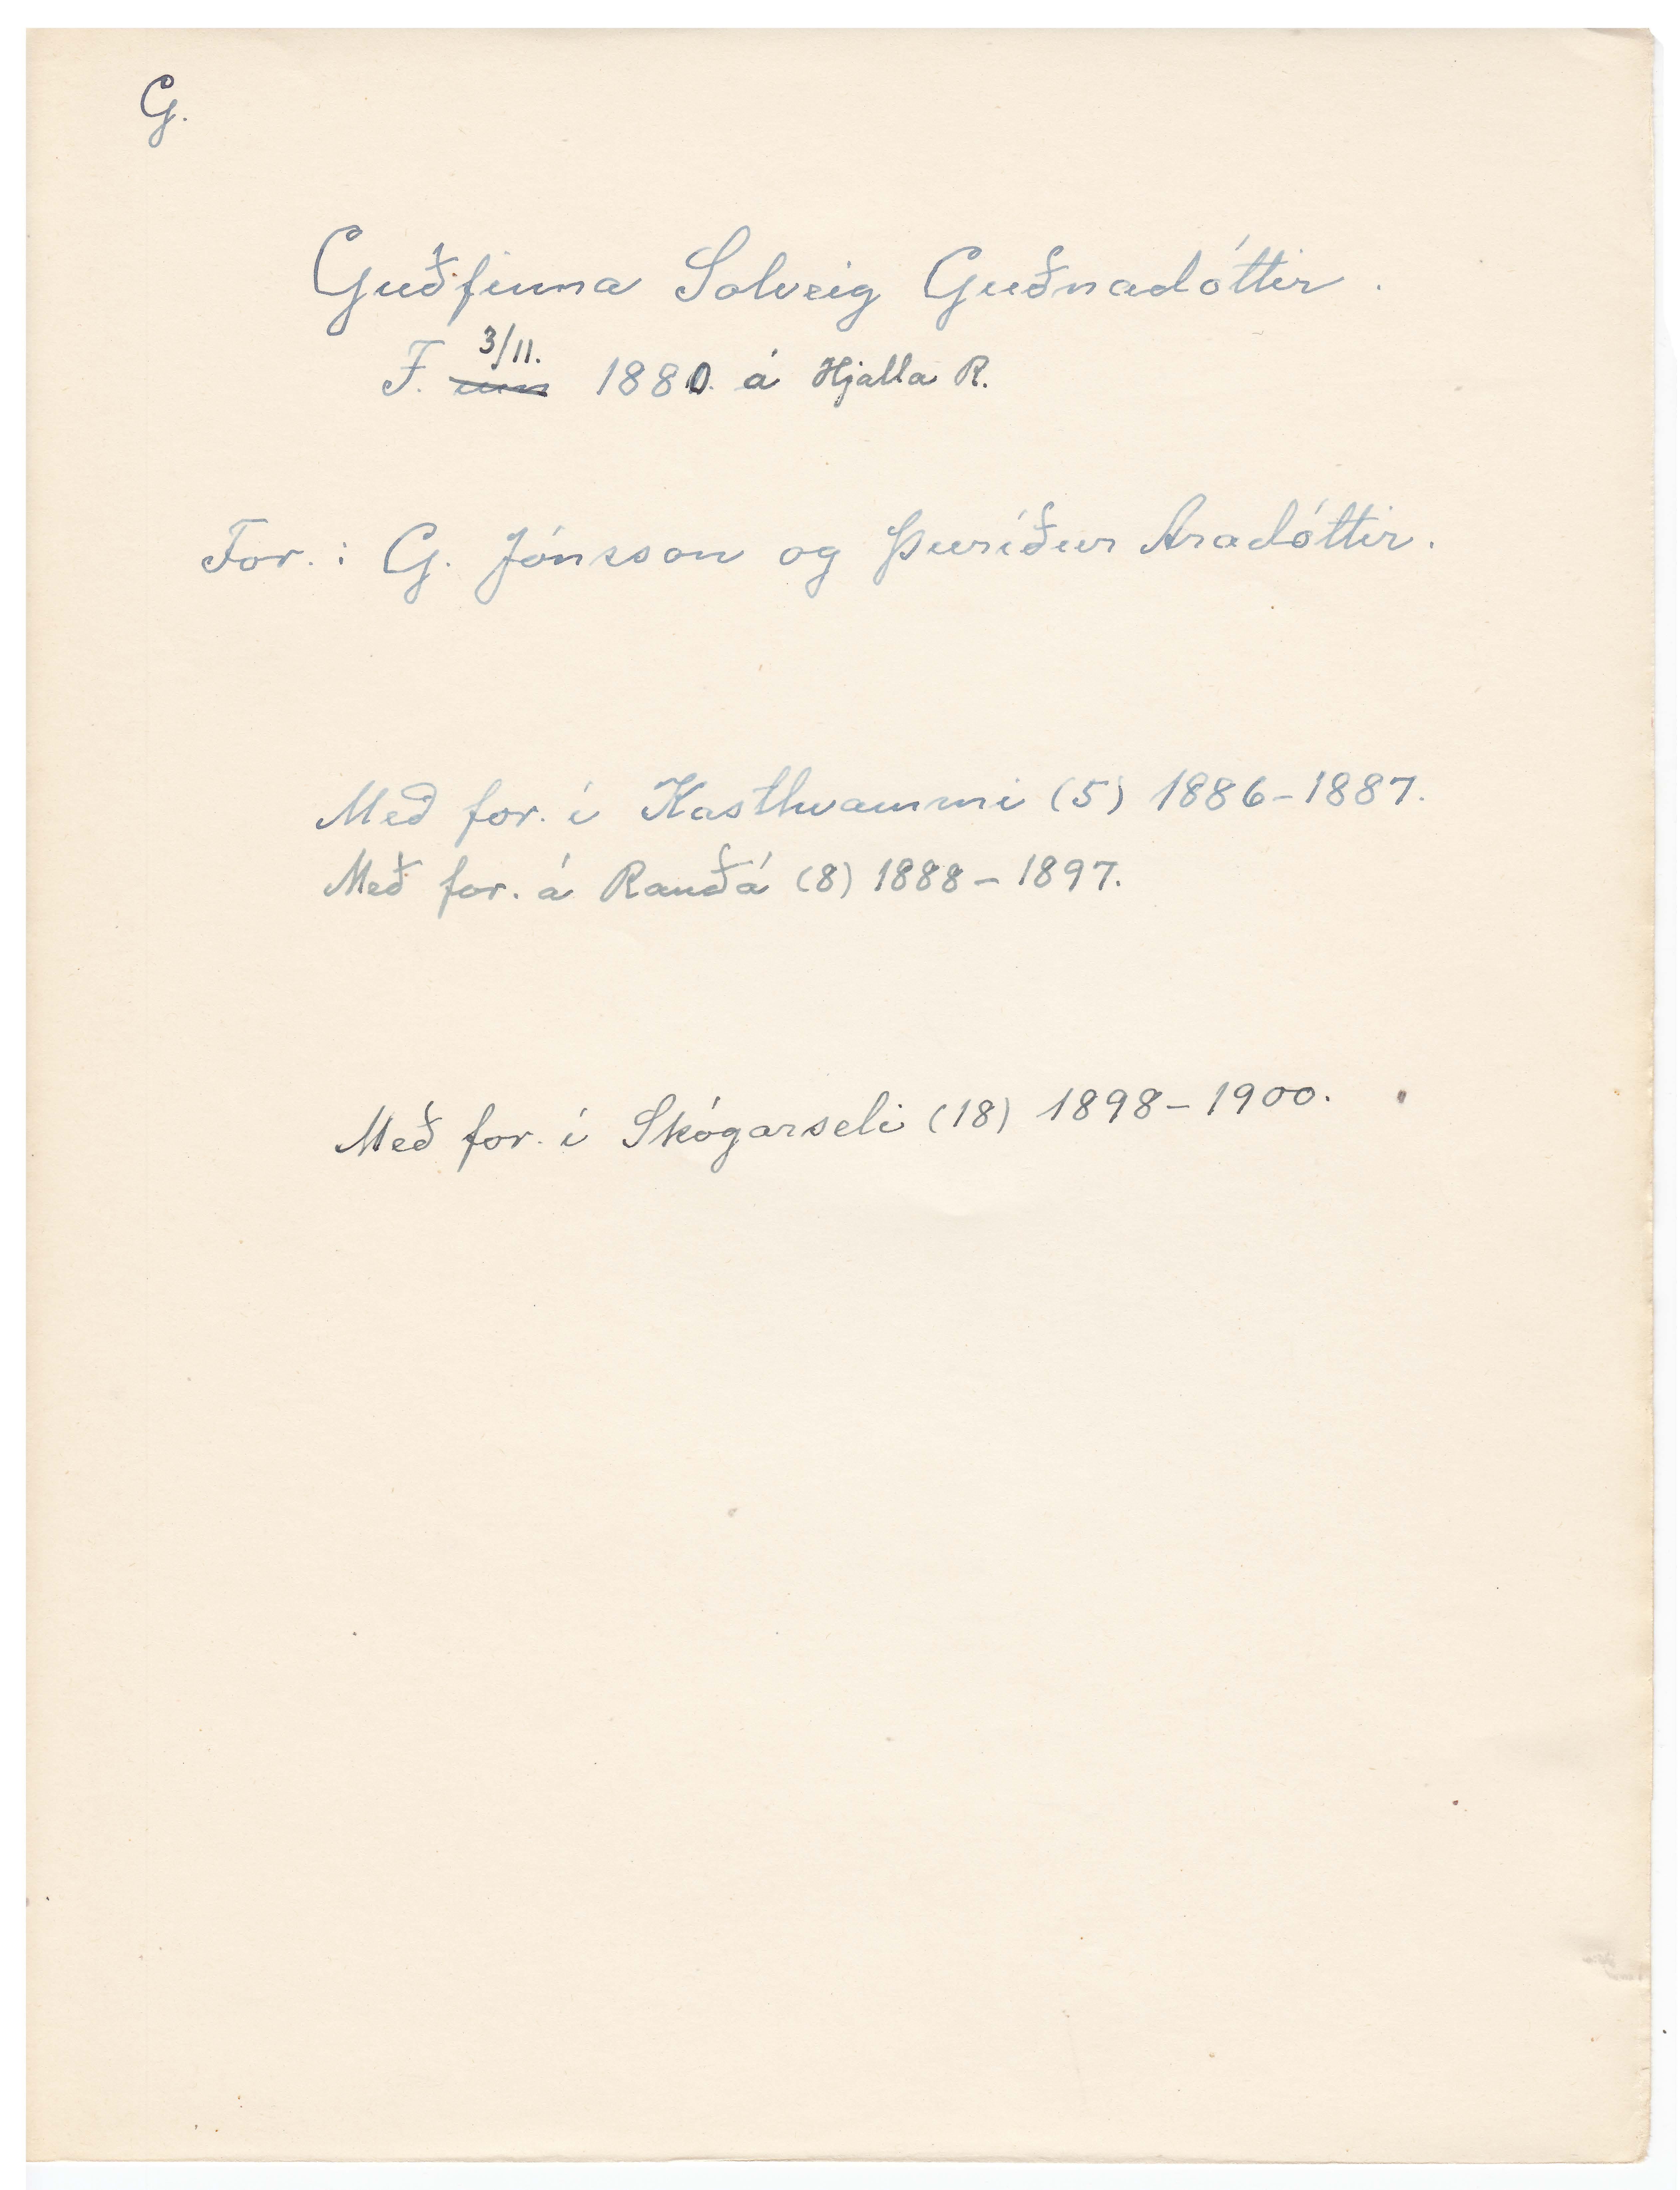 G.
Guðfinna Solveig Guðnadóttir.
3/11.
F. um 1880. á Hjalla R.
For.: G. Jónsson og Þuríður Aradóttir.
Með for. í Kasthvammi (5) 1886-1887.
Með for. á Rauðá (8) 1888-1897.
Með for. í Skógarseli (18) 1898-1900.